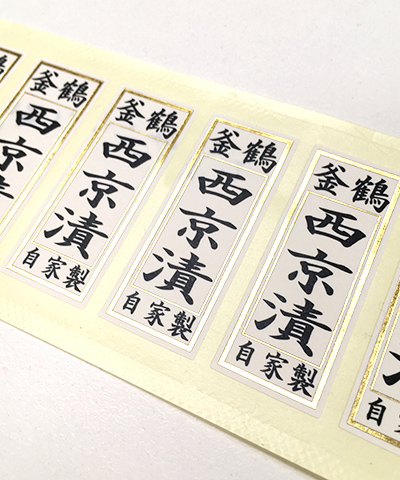 釜鶴
西京漬
自家製
釜鶴
西京漬
自家製
釜鶴
西京漬
自家製
釜鶴
西京漬
自家製
自